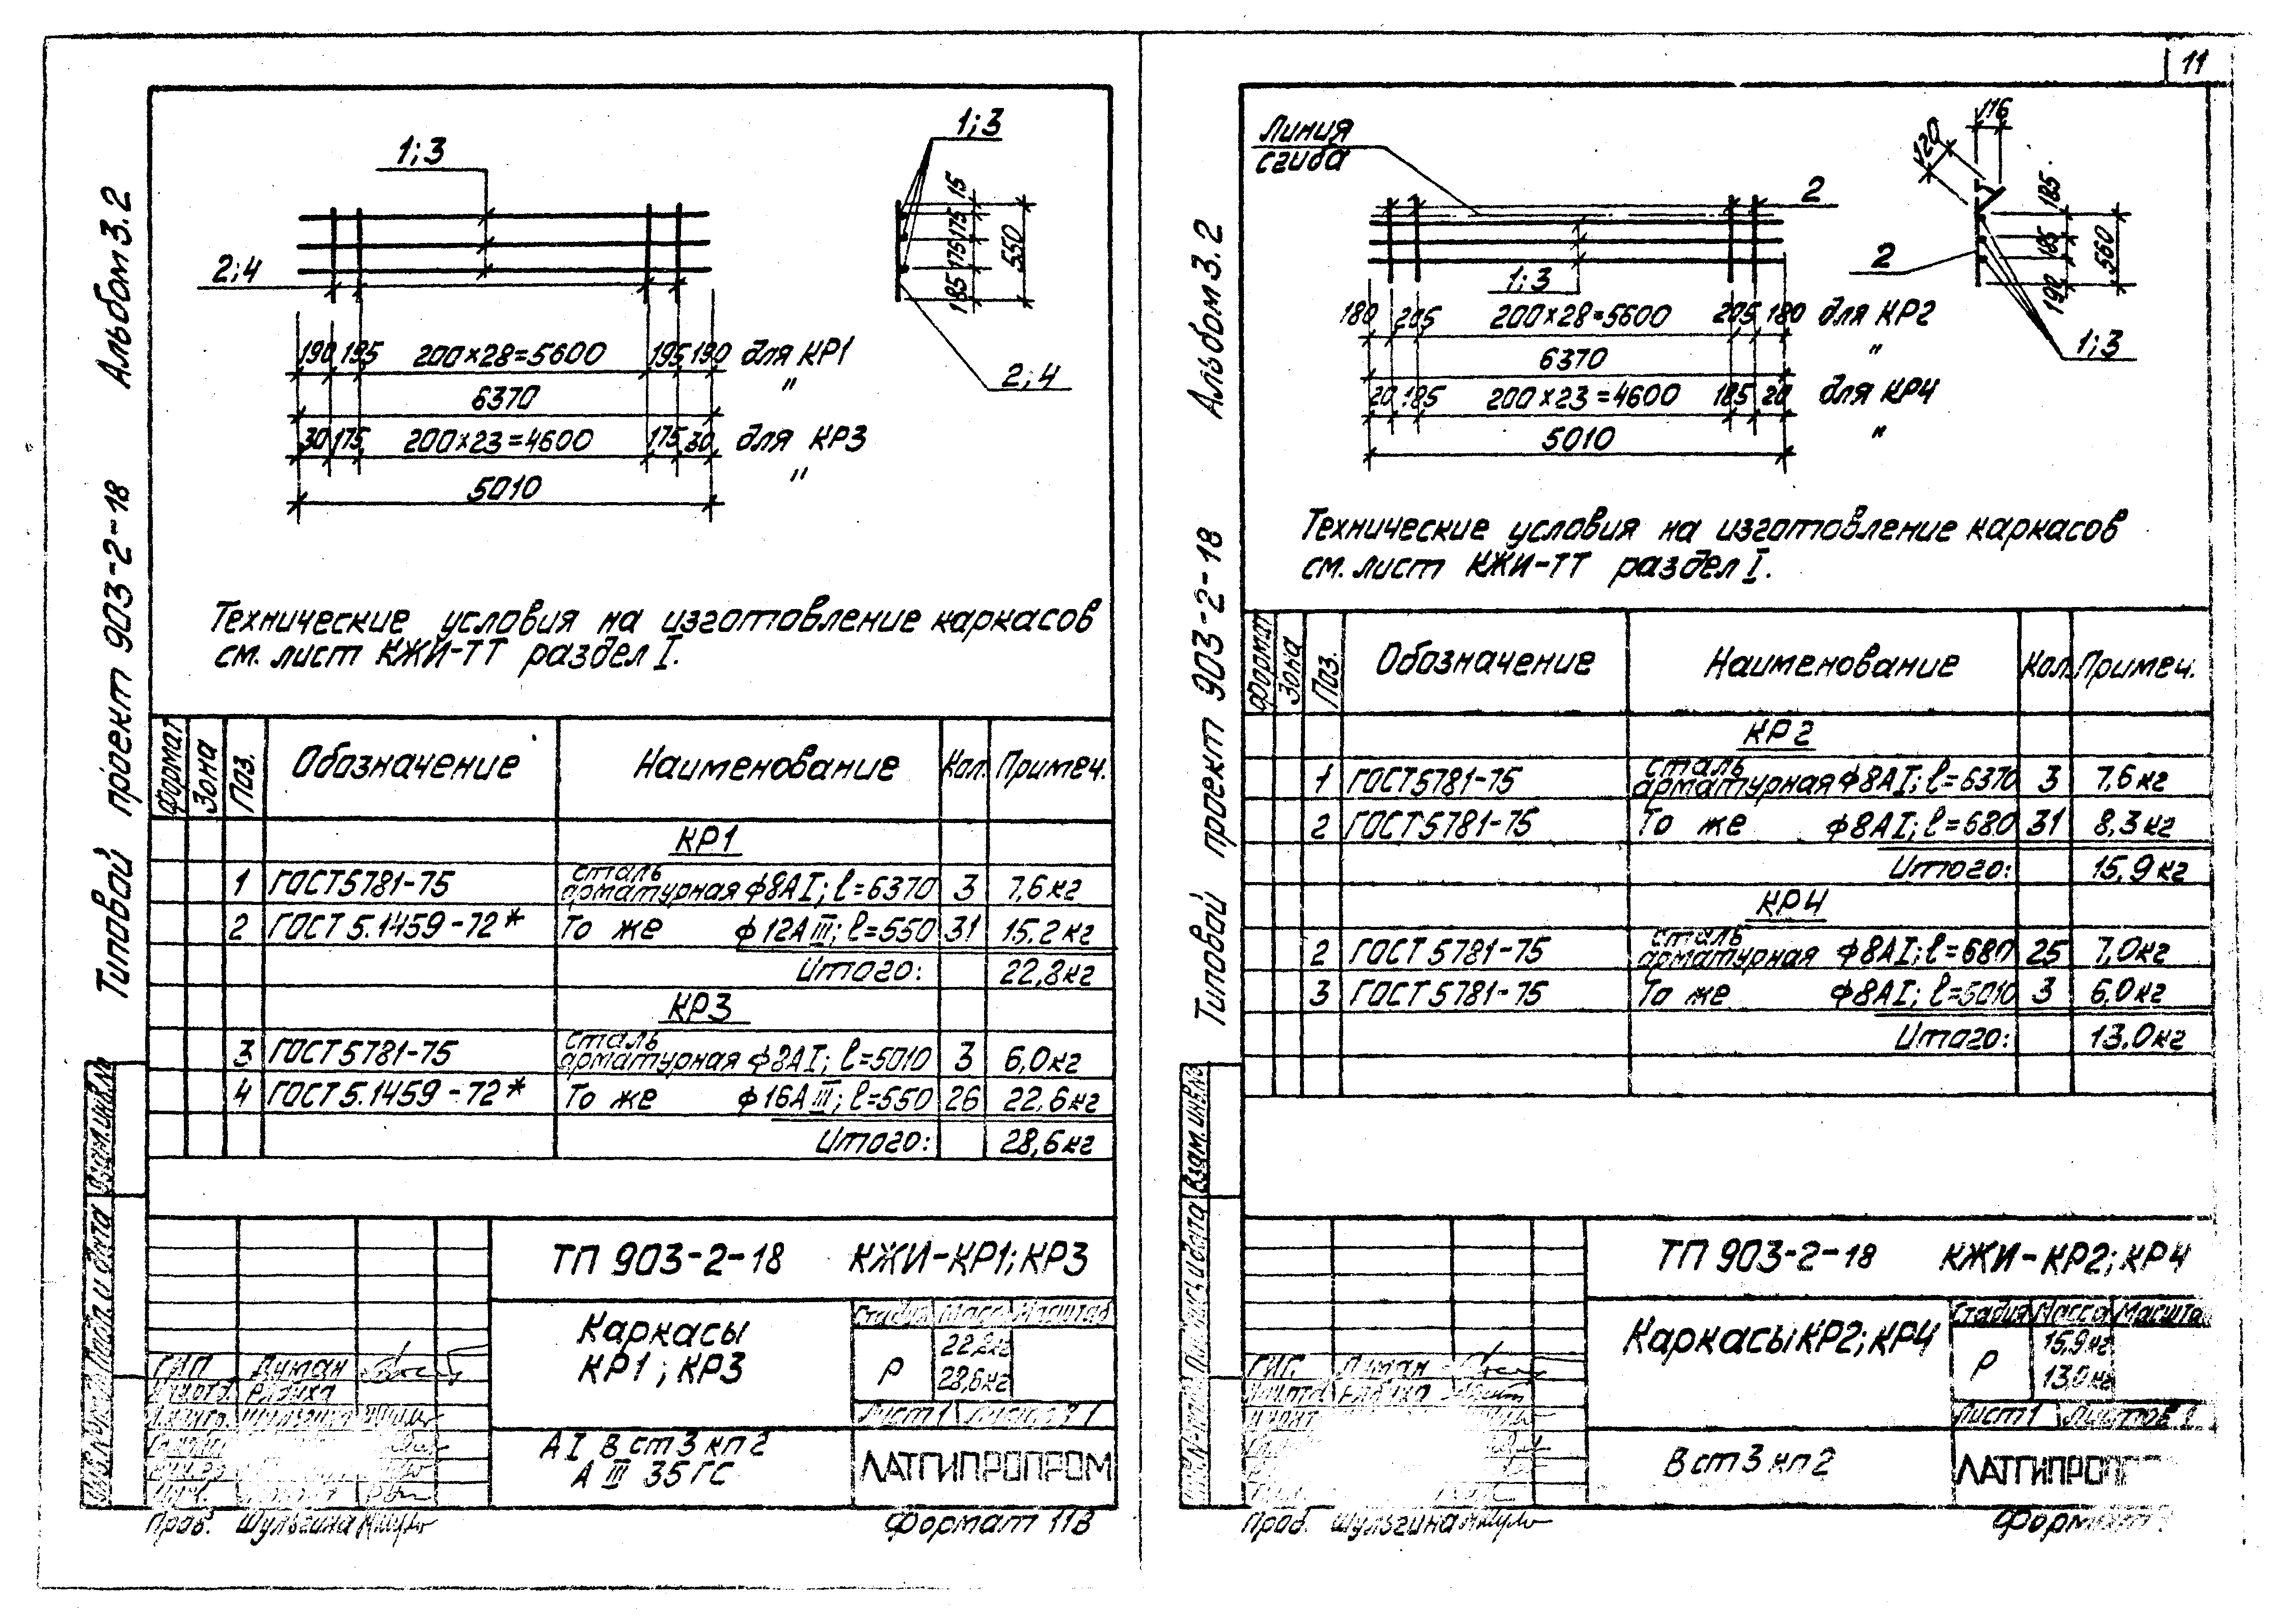 11
Альбом 3.2
Типовой проект 903-2-18
1;3
2;4
1;3
15
175
175
185
550
2;4
190 195 200×28=5600 195 190 для КР1
6370 "
30 175 200×23=4600 175 30 для КР3
5010 "
Технические условия на изготовление каркасов
см. лист КЖИ-ТТ раздел I.
Формат Зона Поз. Обозначение Наименование Кол. Примеч.
КР1
1 ГОСТ 5781-75 сталь арматурная ф8АI; ℓ=6370 3 7,6кг
2 ГОСТ 5.1459-72* То же ф12АIII; ℓ=550 31 15.2кг
Итого: 22,8кг
КР3
3 ГОСТ 5781-75 сталь арматурная ф8АI; ℓ=5010 3 6,0кг
4 ГОСТ 5.1459-72* То же ф16АIII; ℓ=550 26 22,6кг
Итого: 28,6кг
Взам.инв.№
Подп. и дата
ТП 903-2-18 КЖИ-КР1;КР3
Каркасы
КР1; КР3
Стадия Масса Масштаб
Р
28,6кг
Лист 1
АI Вст3кп2
АIII 35ГС
ЛАТГИПРОПРОМ
ГИП Думан
Пров. Шульгина
Формат 11В
Альбом 3.2
Типовой проект 903-2-18
Линия
сгиба
2
1;3
116
120
185
185
190
560
2
1;3
180 205 200×28=5600 205 180 для КР2
6370 "
20 185 200×23=4600 185 20 для КР4
5010 "
Технические условия на изготовление каркасов
см. лист КЖИ-ТТ раздел I.
Формат Зона Поз. Обозначение Наименование Кол. Примеч.
КР2
1 ГОСТ 5781-75 сталь арматурная ф8АI; ℓ=6370 3 7,6кг
2 ГОСТ 5781-75 То же ф8АI; ℓ=680 31 8,3кг
Итого: 15,9кг
КР4
2 ГОСТ 5781-75 сталь арматурная ф8АI; ℓ=680 25 7,0кг
3 ГОСТ 5781-75 То же ф8АI; ℓ=5010 3 6,0кг
Итого: 13.0кг
Взам.инв.№
ТП 903-2-18 КЖИ-КР2;КР4
Каркасы КР2; КР4
Стадия Масса
Р 15,9кг
13,0кг
Лист 1 Листов 1
Вст3кп2
Думан
Пров. Шульгина